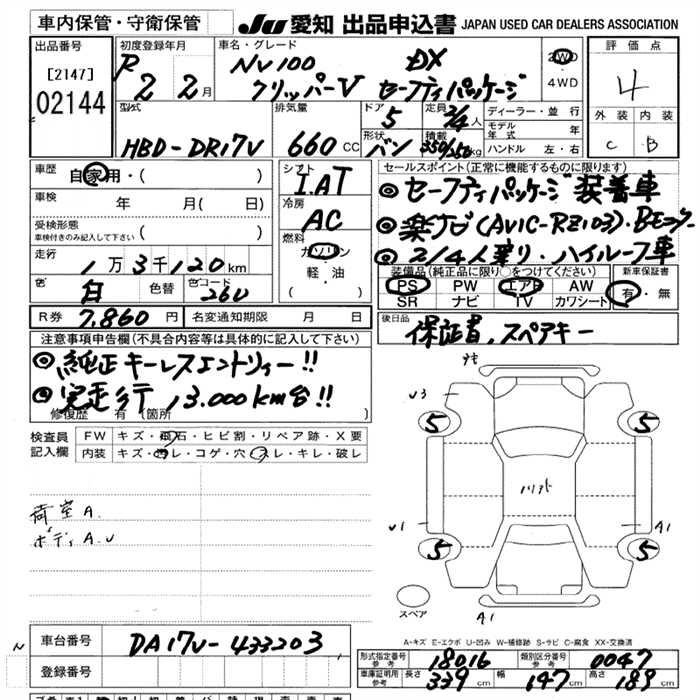 車内保管・守衛保管
JU 愛知 出品申込書 JAPAN USED CAR DEALERS ASSOCIATION
出品番号 [2147] 02144
初度登録年月 R 2 2月
車名・グレード NV100 DX
クリッパーV セーフティパッケージ
2WD
・
4WD
評価点 4
外装 内装
C B
型式 HBD-DR17V
排気量 660 CC
ドア 5 定員 2/4人
形状 バン 積載 350/250kg
ディーラー・並行
モデル年式 年
ハンドル 左・右
車歴 自家用・( )
車検 年 月( 日)
受検形態
車検付きのみ記入して下さい ( )
走行 1万3千120km
色 白 色替 色コード 26U
シフト I.AT
冷房 AC
燃料 ガソリン
・
軽・油
( )
セールスポイント(正常に機能するものに限ります)
◎セーフティパッケージ装着車
◎楽ナビ(AVIC-RZ103)・Bモニター
◎2/4人乗り・ハイルーフ車
装備品(純正品に限り○をつけてください) 新車保証書
PS PW エアB AW 有・無
SR ナビ TV カワシート
R券 7,860円 名変通知期限 月 日
後日品 保証書、スペアキー
注意事項申告欄(不具合内容等は具体的に記入して下さい)
◎純正キーレスエントリィー!!
◎実走行 13.000km台!!
修復歴 有(箇所 )
検査員記入欄
FW キズ・飛石・ヒビ割・リペア跡・X要
内装 キズ・ヨレ・コゲ・穴・スレ・キレ・破レ
荷室A.
ボディA.U
U3
5 5
U1 A1
5 5
スペア
A1
A-キズ E-エクボ U-凹み W-補修跡 S-サビ C-腐食 XX-交換済
車台番号 DA17V-433203
登録番号
形式指定番号 参考 18016 類別区分番号 参考 0047
車庫証明用 参考 長さ 339cm 幅 147cm 高さ 189cm